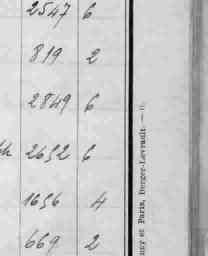 2547 6
819 2
2849 6
2652 6
1656 4
669 2
et Paris, Berger-Levrault. —